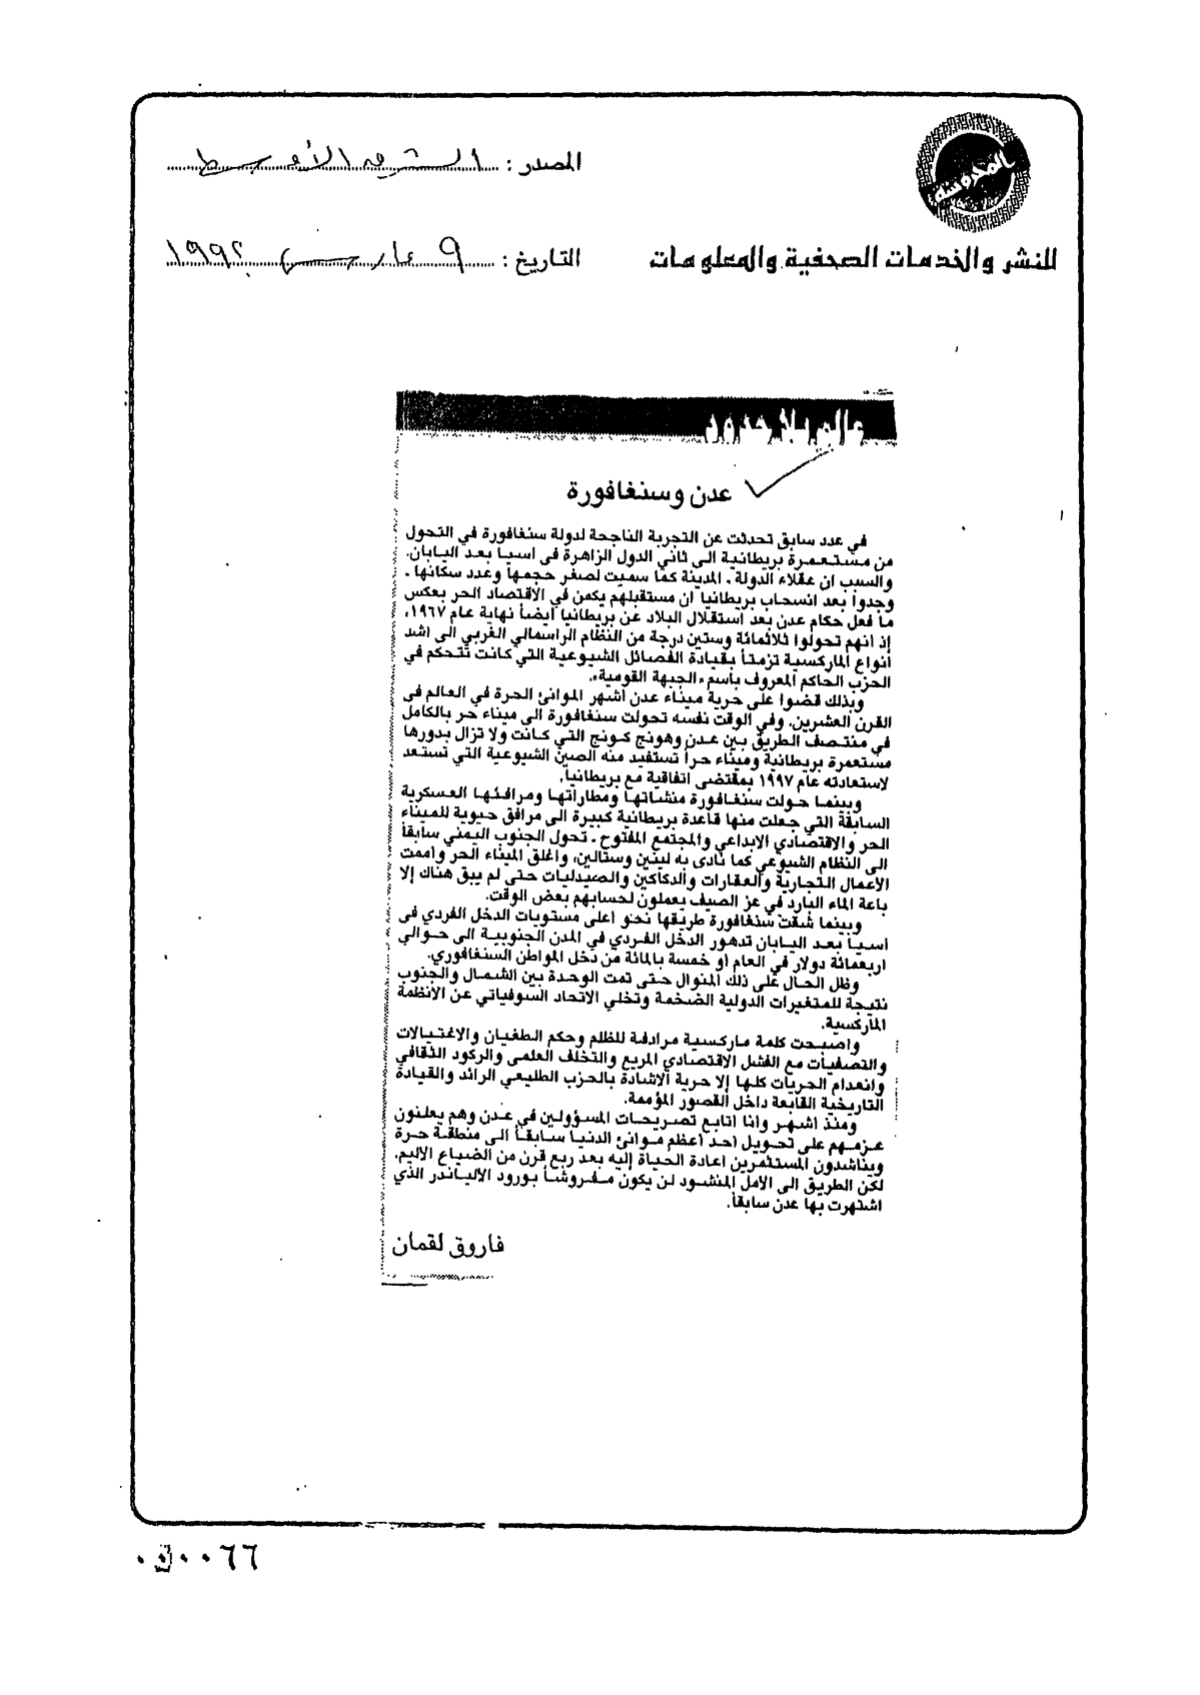 المحروسة
المصدر : الشرق الأوسط
للنشر والخدمات الصحفية والمعلومات
التاريخ : ٩ مارس ١٩٩٢
عالم بلا حدود
عدن وسنغافورة
في عدد سابق تحدثت عن التجربة الناجحة لدولة سنغافورة في التحول
من مستعمرة بريطانية الى ثاني الدول الزاهرة فى اسيا بعد اليابان.
والسبب ان عقلاء الدولة . المدينة كما سميت لصغر حجمها وعدد سكانها .
وجدوا بعد انسحاب بريطانيا ان مستقبلهم يكمن في الاقتصاد الحر بعكس
ما فعل حكام عدن بعد استقلال البلاد عن بريطانيا ايضاً نهاية عام ١٩٦٧،
إذ انهم تحولوا ثلاثمائة وستين درجة من النظام الراسمالي الغربي الى اشد
أنواع الماركسية تزمتاً بقيادة الفصائل الشيوعية التي كانت تتحكم في
الحزب الحاكم المعروف باسم «الجبهة القومية».
وبذلك قضوا على حرية ميناء عدن اشهر الموانئ الحرة في العالم فى
القرن العشرين. وفي الوقت نفسه تحولت سنغافورة الى ميناء حر بالكامل
في منتصف الطريق بين عدن وهونج كونج التي كانت ولا تزال بدورها
مستعمرة بريطانية وميناء حراً تستفيد منه الصين الشيوعية التي تستعد
لاستعادته عام ١٩٩٧ بمقتضى اتفاقية مع بريطانيا.
وبينما حولت سنغافورة منشاتها ومطاراتها ومرافئها العسكرية
السابقة التي جعلت منها قاعدة بريطانية كبيرة الى مرافق حيوية للميناء
الحر والاقتصادي الابداعي والمجتمع المفتوح . تحول الجنوب اليمني سابقاً
الى النظام الشيوعي كما نادى به لينين وستالين، واغلق الميناء الحر واممت
الأعمال التجارية والعقارات والدكاكين والصيدليات حتى لم يبق هناك إلا
باعة الماء البارد في عز الصيف يعملون لحسابهم بعض الوقت.
وبينما شقت سنغافورة طريقها نحو اعلى مستويات الدخل الفردي فى
اسيا بعد اليابان تدهور الدخل الفردي في المدن الجنوبية الى حوالي
اربعمائة دولار في العام او خمسة بالمائة من دخل المواطن السنغافوري.
وظل الحال على ذلك المنوال حتى تمت الوحدة بين الشمال والجنوب
نتيجة للمتغيرات الدولية الضخمة وتخلي الاتحاد السوفياتي عن الأنظمة
الماركسية.
واصبحت كلمة ماركسية مرادفة للظلم وحكم الطغيان والاغتيالات
والتصفيات مع الفشل الاقتصادي المريع والتخلف العلمى والركود الثقافي
وانعدام الحريات كلها إلا حرية الاشادة بالحزب الطليعي الرائد والقيادة
التاريخية القابعة داخل القصور المؤممة.
ومنذ اشهر وانا اتابع تصريحات المسؤولين في عدن وهم يعلنون
عزمهم على تحويل احد اعظم موانئ الدنيا سابقاً الى منطقة حرة
ويناشدون المستثمرين اعادة الحياة إليه بعد ربع قرن من الضياع الاليم.
لكن الطريق الى الامل المنشود لن يكون مفروشاً بورود الالياندر الذي
اشتهرت بها عدن سابقاً.
فاروق لقمان
٠٠٠٠٦٦